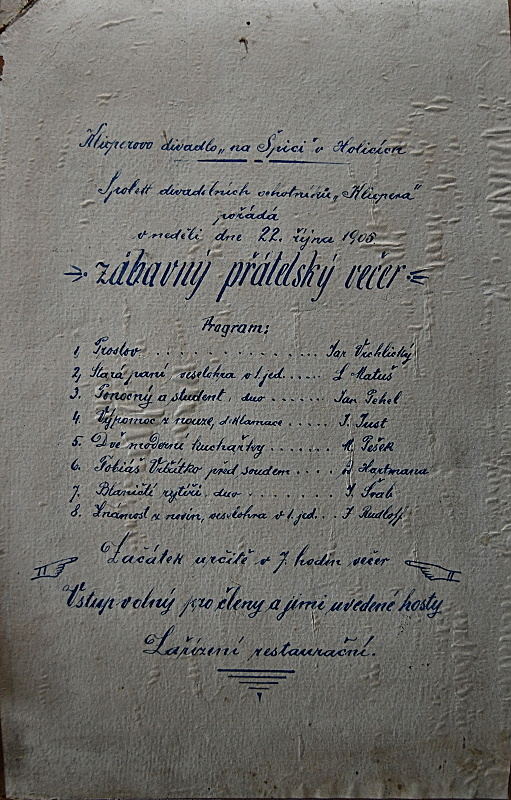 Klicperovo divadlo „na Špici" v Holicích
Spolek divadelních ochotníků „Klicpera"
pořádá
v neděli dne 22. října 1905
zábavný přátelský večer
Program:
1, Proslov . . . . . . . . . . . . . . . Jar Vrchlický
2, Stará paní, veselohra v 1. jed. . . . . . L Matuš
3. Ponocný a student, duo . . . . . . Jan Pehel
4. Výpomoc z nouze, deklamace . . . . . J. Just
5. Dvě moderní kuchařky . . . . . M. Pešek
6. Tobiáš Vrtítko před soudem . . . . Hartmana
7. Blaničtí rytíři, duo . . . . . . . . J. Šváb
8. Známost z novin, veselohra v 1. jed. . . J Rudloff
Začátek určitě v 7. hodin večer
Vstup volný pro členy a jimi uvedené hosty
Zařízení restaurační.